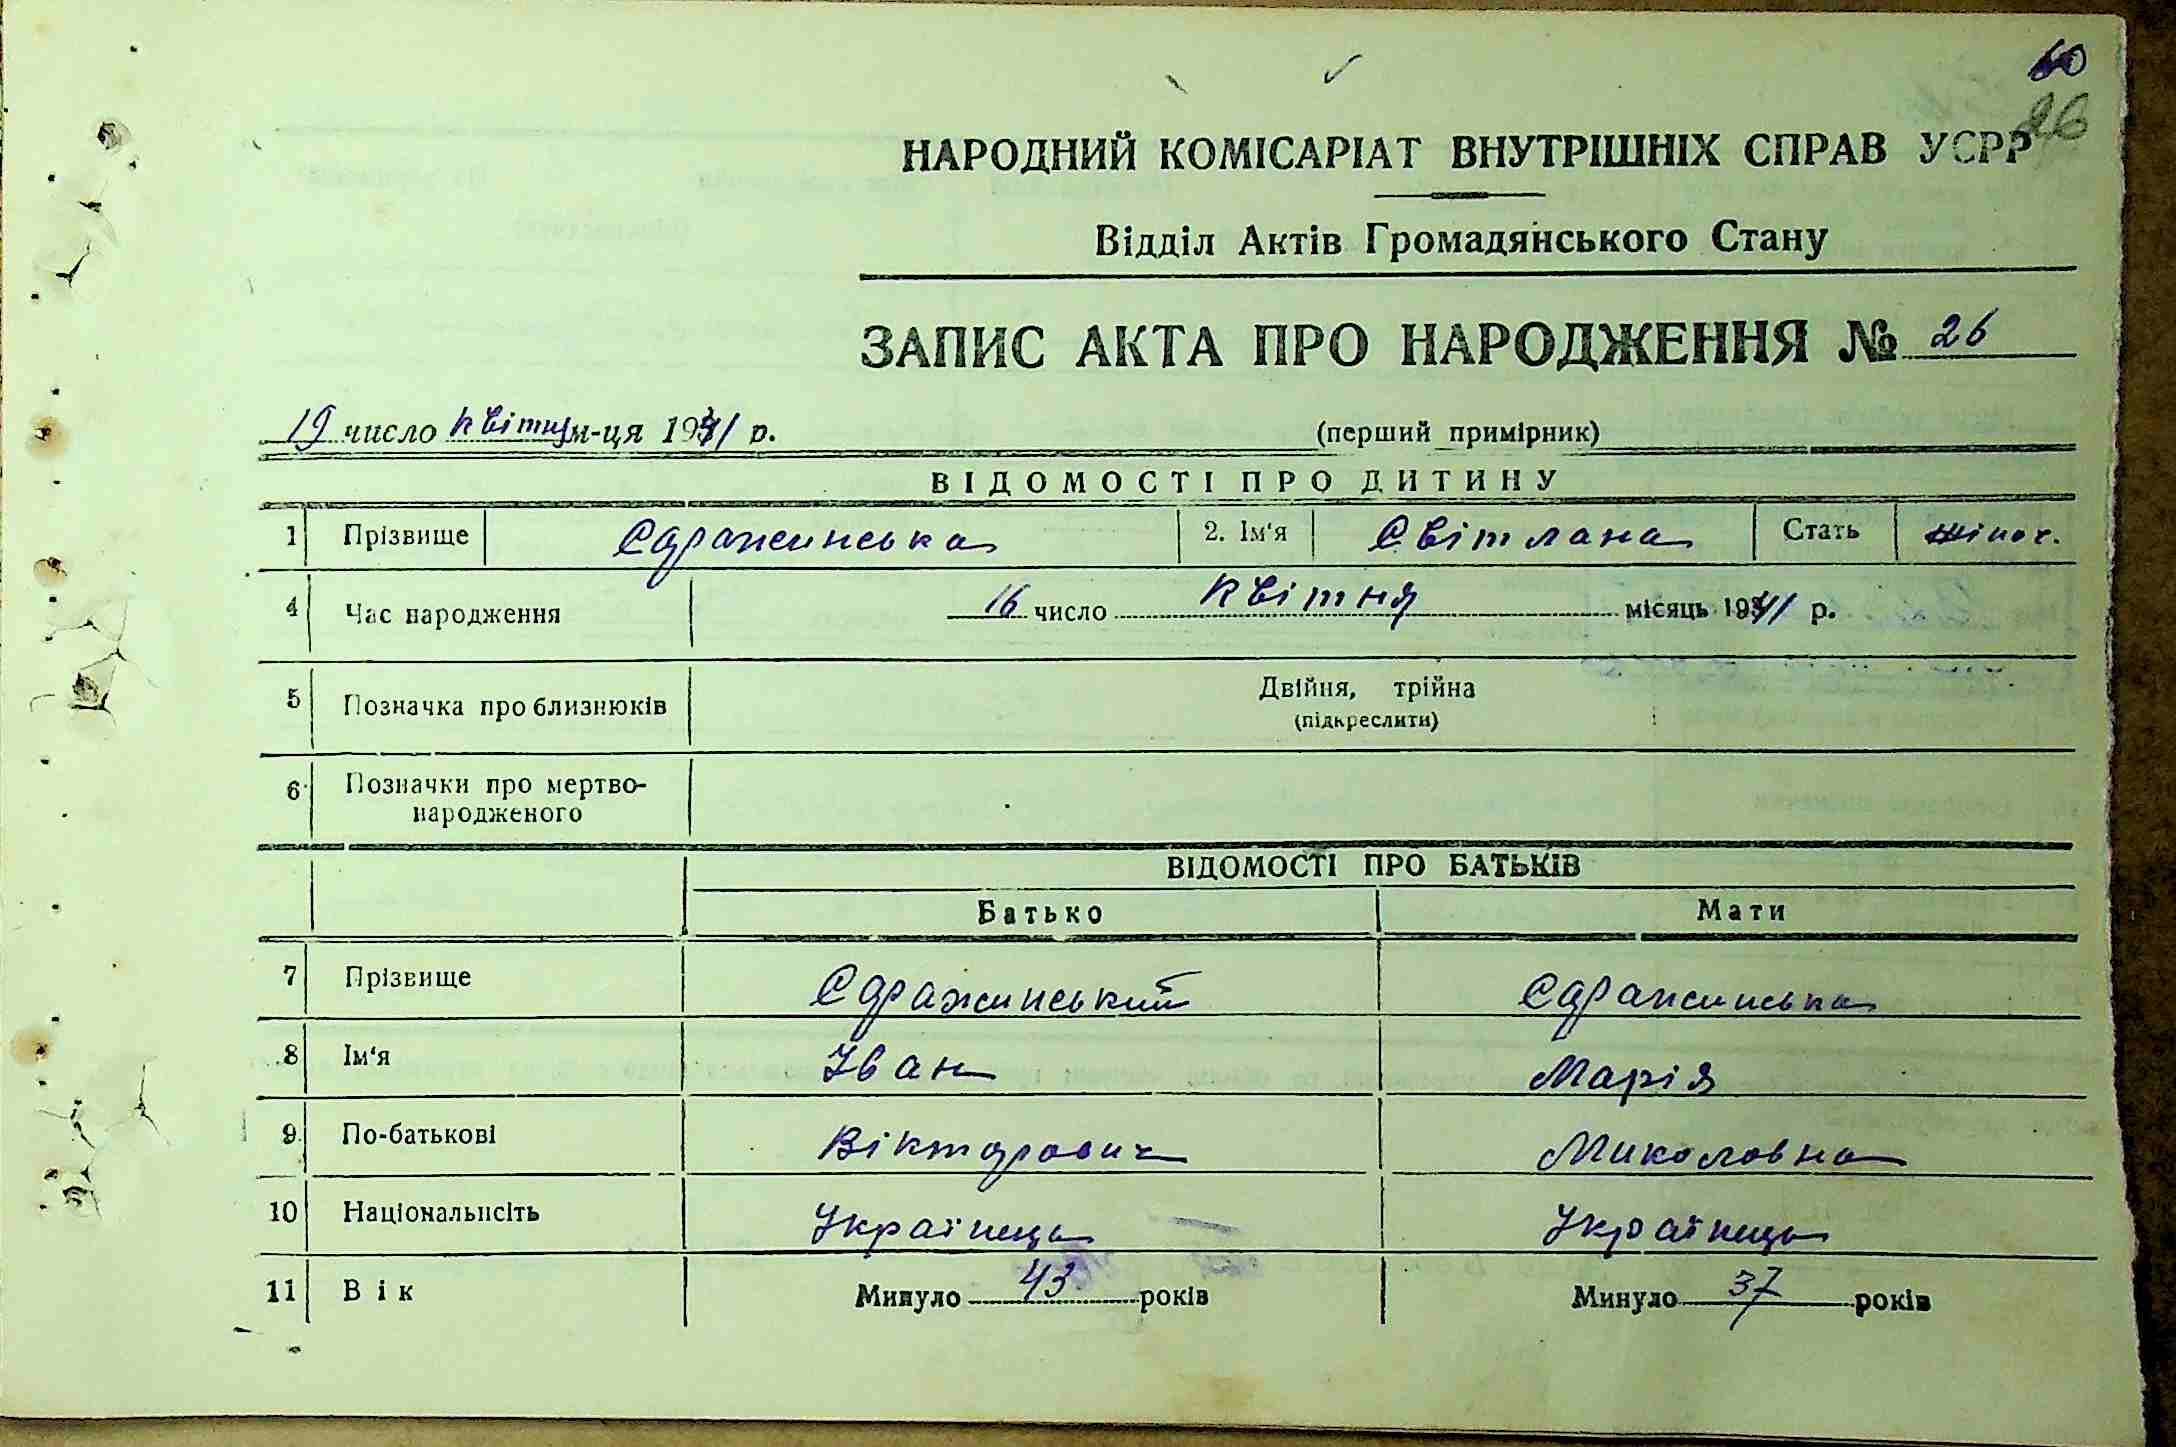 60
26
НАРОДНИЙ КОМІСАРІАТ ВНУТРІШНІХ СПРАВ УСРР
Відділ Актів Громадянського Стану
ЗАПИС АКТА ПРО НАРОДЖЕННЯ № 26
19 число квітня м-ця 1941 р. (перший примірник)
ВІДОМОСТІ ПРО ДИТИНУ
1 Прізвище Сдражинська 2. Ім'я Світлана Стать жіноч.
4 Час народження 16 число квітня місяць 1941 р.
5 Позначка про близнюків Двійня, трійна
(підкреслити)
6 Позначки про мертво-
народженого
ВІДОМОСТІ ПРО БАТЬКІВ
Батько Мати
7 Прізвище Сдражинський Сдражинська
8 Ім'я Іван Марія
9 По-батькові Вікторович Миколовна
10 Національність Українець Українець
11 Вік Минуло 43 років Минуло 37 років